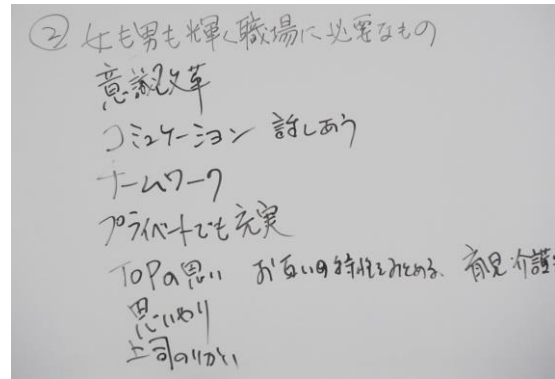 ② 女も男も輝く職場に必要なもの
意識改革
コミュケーション 話しあう
チームワーク
プライベートでも充実
TOPの思い お互いの特性をみとめる、育児・介護
思いやり
上司のりかい